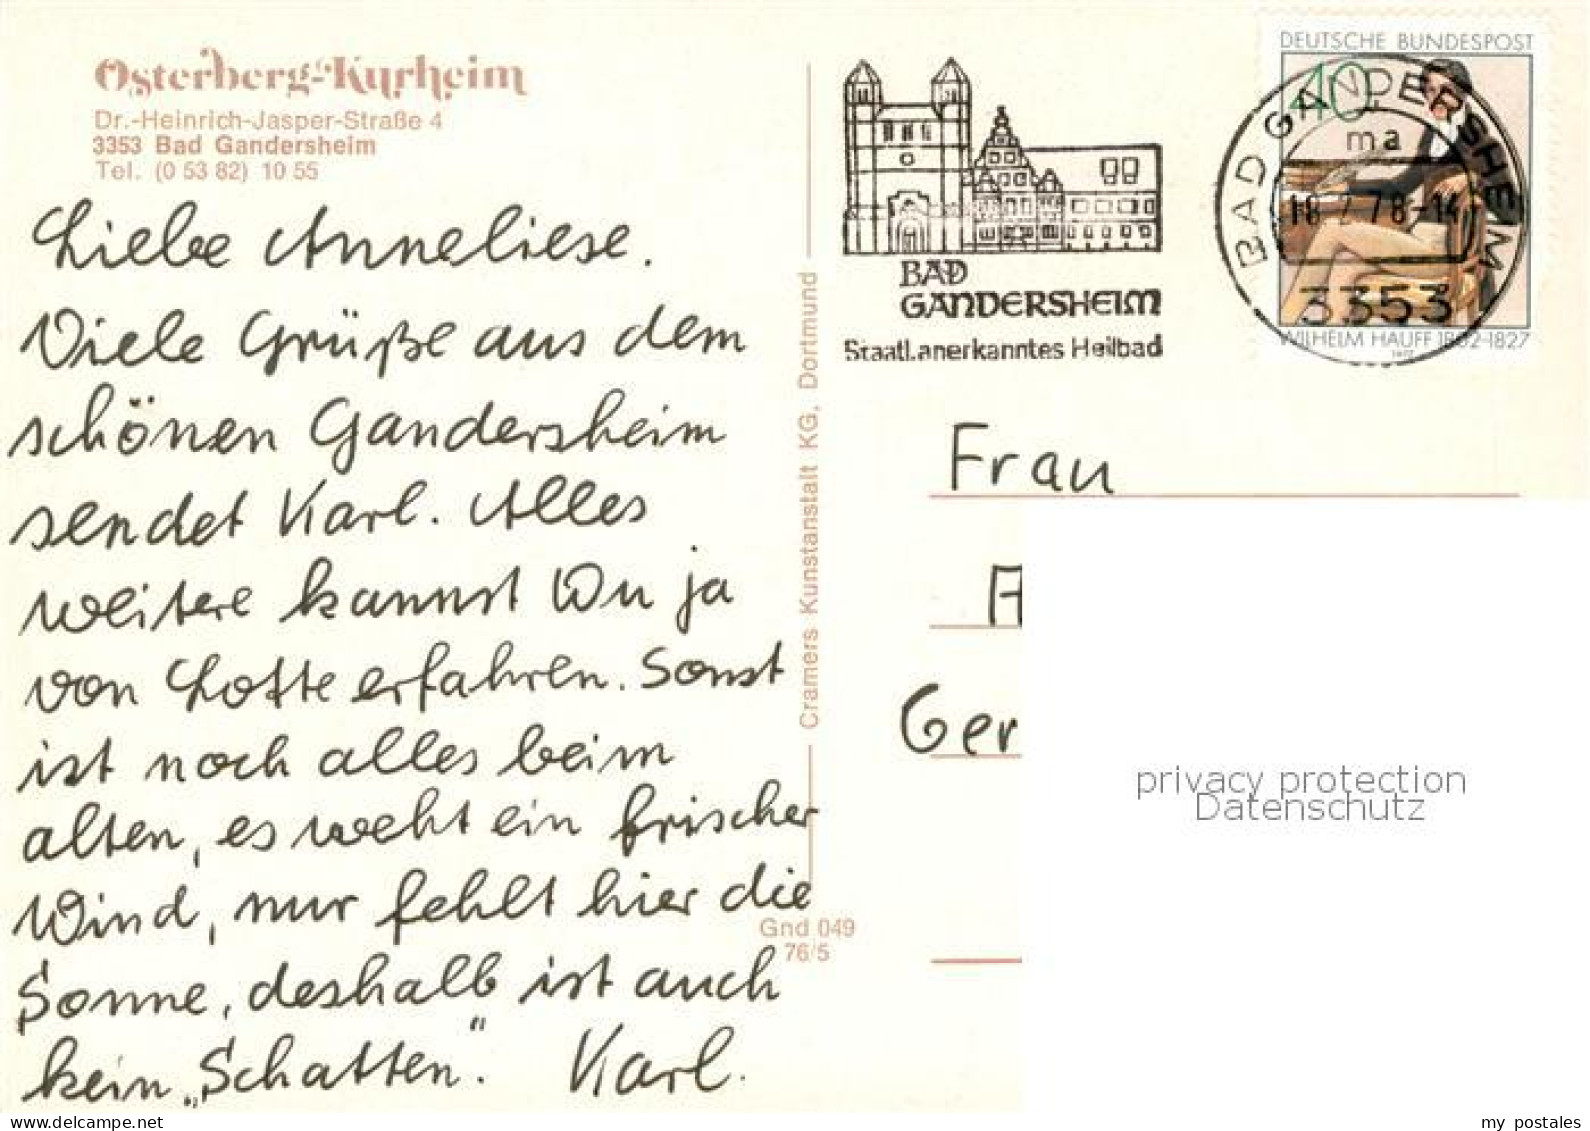 Osterberg-Kurheim
Dr.-Heinrich-Jasper-Straße 4
3353 Bad Gandersheim
Tel. (0 53 82) 10 55
Liebe Anneliese.
Viele Grüße aus dem
schönen Gandersheim
sendet Karl. Alles
weitere kannst Du ja
von Lotte erfahren. Sonst
ist noch alles beim
alten, es weht ein frischer
Wind, nur fehlt hier die
Sonne, deshalb ist auch
kein „Schatten". Karl.
Cramers Kunstanstalt KG, Dortmund
Gnd 049
76/5
BAD
GANDERSHEIM
Staatl. anerkanntes Heilbad
DEUTSCHE BUNDESPOST
40
WILHELM HAUFF 1802-1827
1977
BAD GANDERSHEIM
ma
78-14
3353
Frau
Ger
privacy protection
Datenschutz
my postales